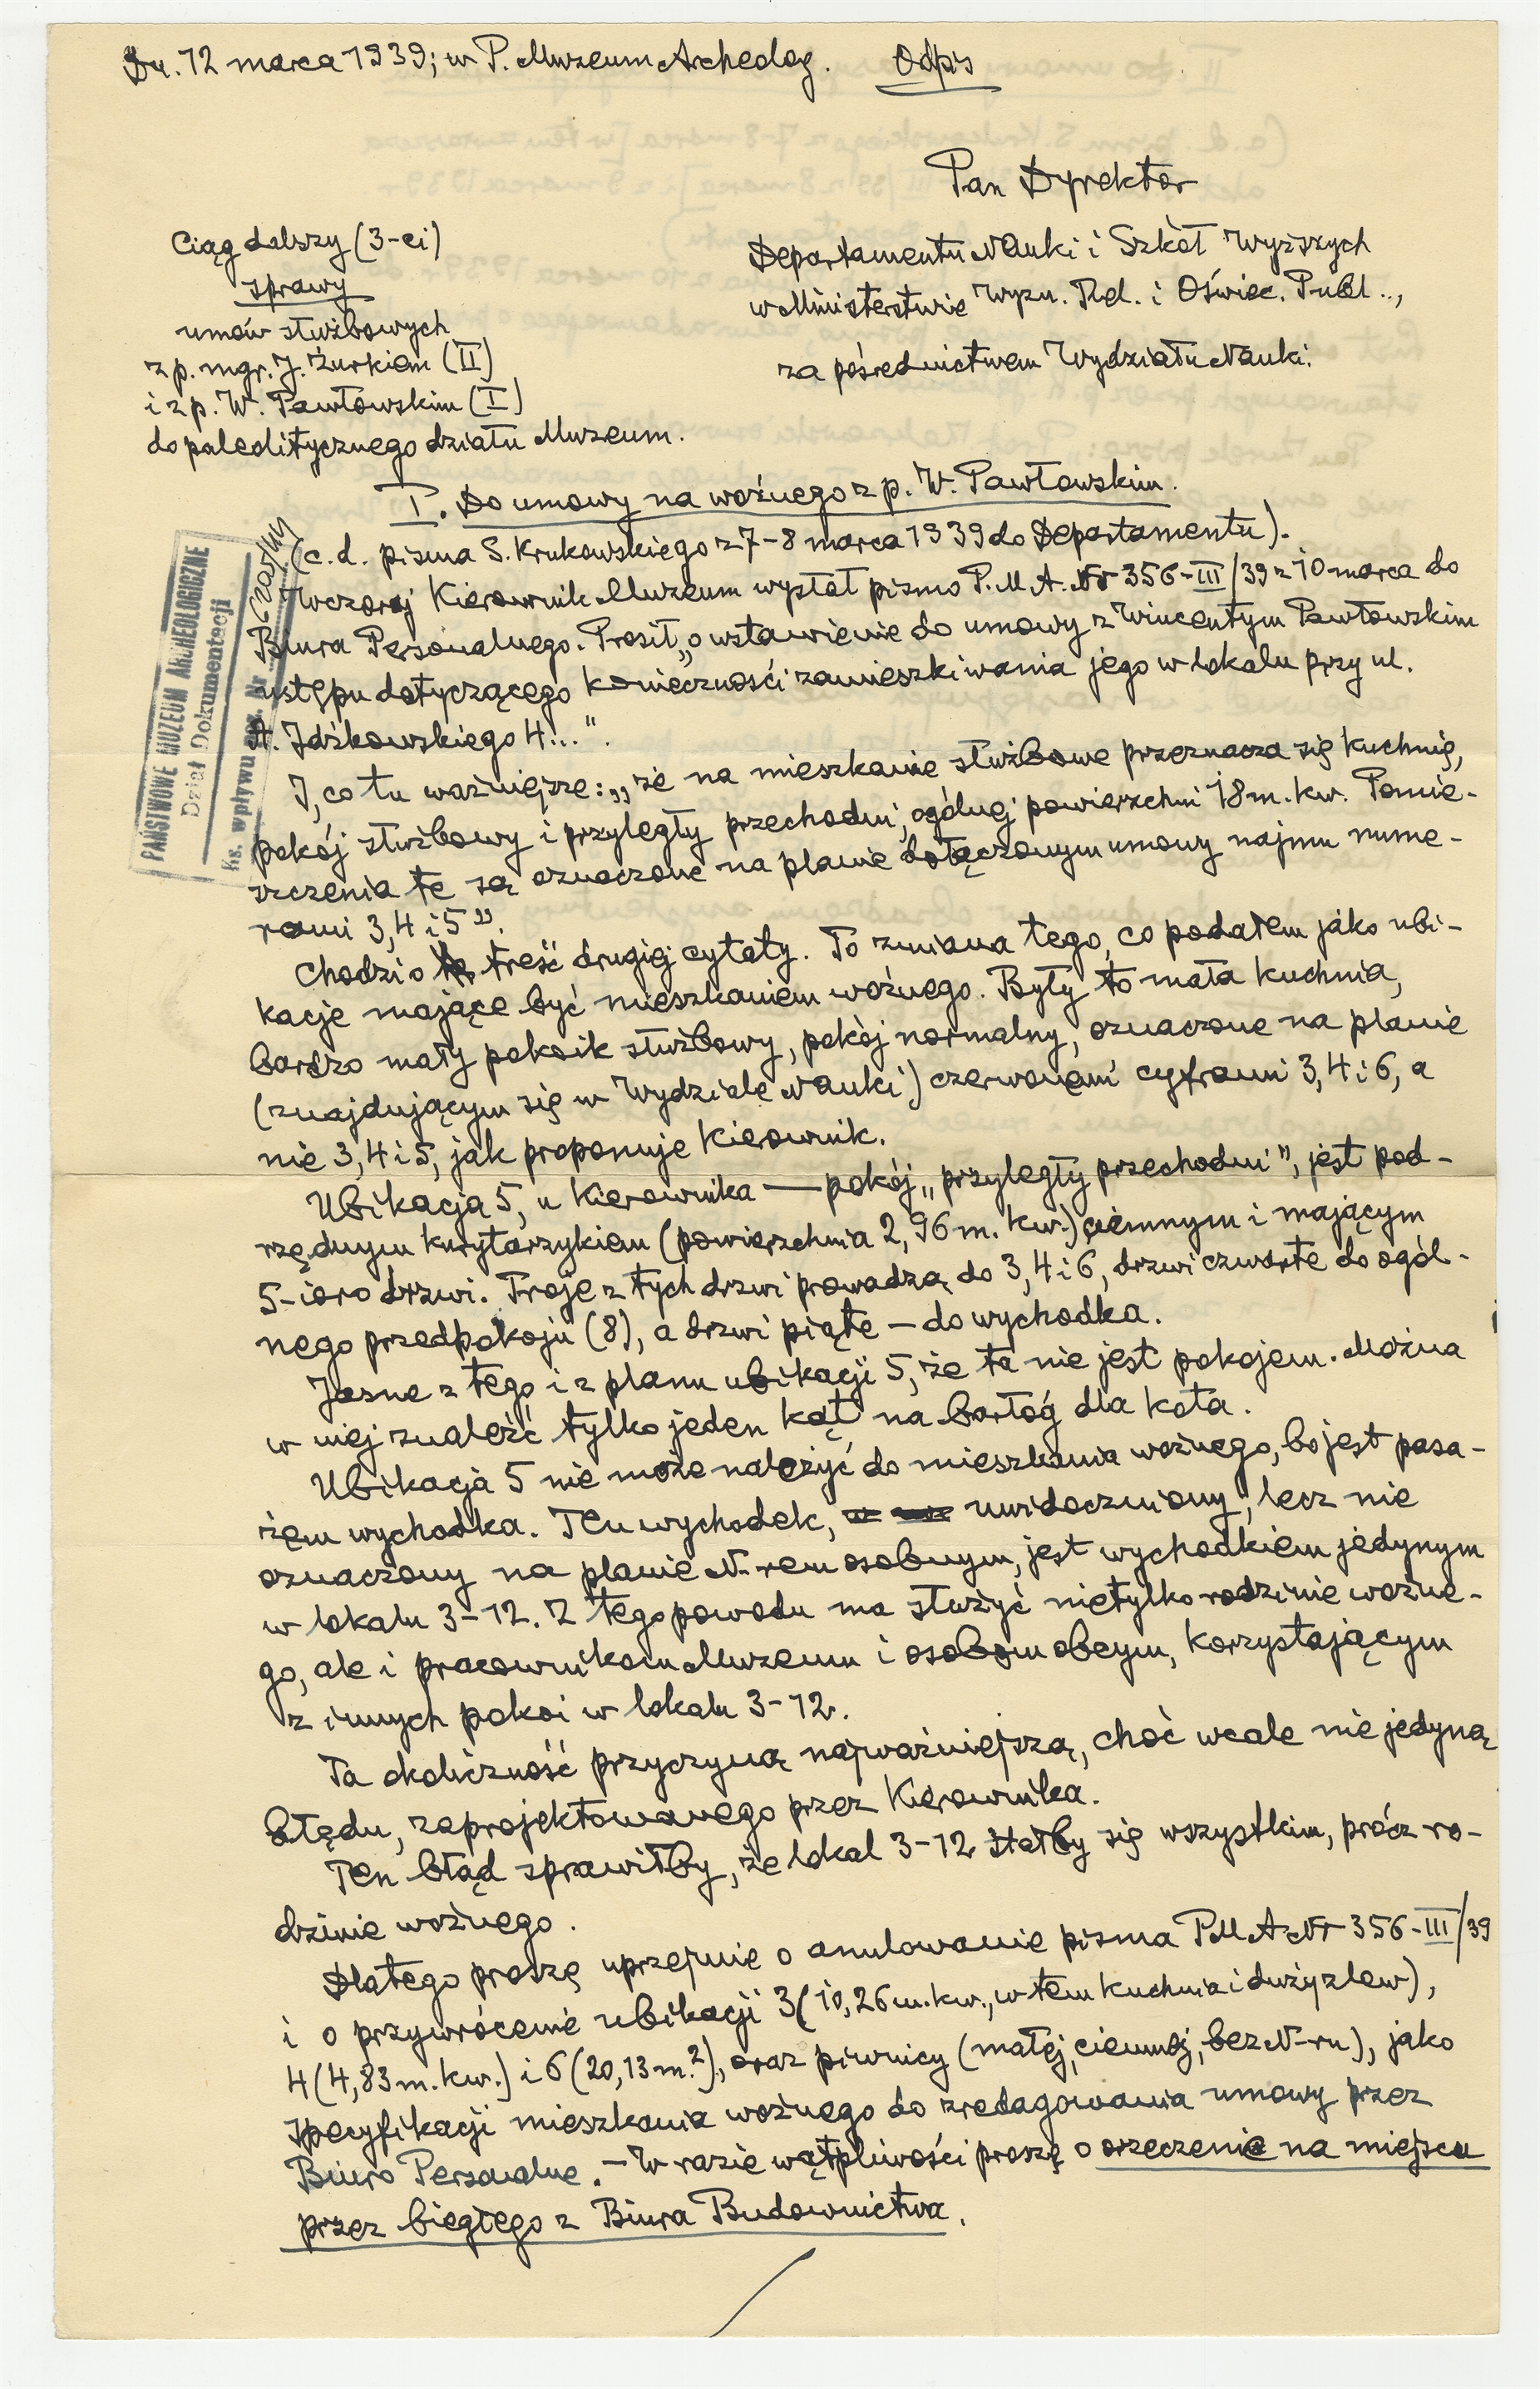 Dn. 12 marca 1939; w P. Muzeum Archeolog. Odpis
Pan Dyrektor
Departamentu Nauki i Szkół Wyższych
w Ministerstwie Wyzn. Rel. i Oświec. Publ..,
za pośrednictwem Wydziału Nauki.
Ciąg dalszy (3-ci)
sprawy
umów służbowych
z p. mgr. J. Żurkiem (II)
i z p. W. Pawłowskim (I)
do paleolitycznego działu Muzeum.
I. Do umowy na woźnego z p. W. Pawłowskim.
(c.d. pisma S. Krukowskiego z 7-8 marca 1939 do Departamentu).
Wczoraj Kierownik Muzeum wysłał pismo P.M.A. Nr 356-III/39 z 10 marca do
Biura Personalnego. Prosił „o wstawienie do umowy z Wincentym Pawłowskim
ustępu dotyczącego konieczności zamieszkiwania jego w lokalu przy ul.
A. Idźkowskiego 4...".
I, co tu ważniejsze: „że na mieszkanie służbowe przeznacza się kuchnię,
pokój służbowy i przyległy przechodni, ogólnej powierzchni 18 m. kw. Pomie-
szczenia te są oznaczone na planie dołączonym umowy najmu nume-
rami 3, 4 i 5".
Chodzi o treść drugiej cytaty. To zmiana tego, co podałem jako ubi-
kacje mające być mieszkaniem woźnego. Były to mała kuchnia,
bardzo mały pokoik służbowy, pokój normalny, oznaczone na planie
(znajdującym się w Wydziale Nauki) czerwonemi cyframi 3, 4 i 6, a
nie 3, 4 i 5, jak proponuje Kierownik.
Ubikacja 5, u Kierownika — pokój „przyległy przechodni", jest pod-
rzędnym kurytarzykiem (powierzchnia 2,96 m. kw.) ciemnym i mającym
5-ioro drzwi. Troje z tych drzwi prowadzą do 3, 4 i 6, drzwi czwarte do ogól-
nego przedpokoju (8), a drzwi piąte — do wychodka.
Jasne z tego i z planu ubikacji 5, że ta nie jest pokojem. Można
w niej znaleźć tylko jeden kąt na barłóg dla kota.
Ubikacja 5 nie może należyć do mieszkania woźnego, bo jest pasa-
żem wychodka. Ten wychodek, uwidoczniony, lecz nie
oznaczony na planie N-rem osobnym, jest wychodkiem jedynym
w lokalu 3-12. Z tego powodu ma służyć nietylko rodzinie woźne-
go, ale i pracownikom Muzeum i osobom obcym, korzystającym
z innych pokoi w lokalu 3-12.
Ta okoliczność przyczyną najważniejszą, choć wcale nie jedyną
błędu, zaprojektowanego przez Kierownika.
Ten błąd sprawiłby, że lokal 3-12 stałby się wszystkim, prócz ro-
dzinie woźnego.
Dlatego proszę uprzejmie o anulowanie pisma PMA Nr 356-III/39
i o przywrócenie ubikacji 3 (10,26 m. kw., w tem kuchnia i duży zlew),
4 (4,83 m. kw.) i 6 (20,13 m.²), oraz piwnicy (małej, ciemnej, bez N-ru), jako
specyfikacji mieszkania woźnego do zredagowania umowy przez
Biuro Personalne. — W razie wątpliwości proszę o orzeczenie na miejscu
przez biegłego z Biura Budownictwa.
PAŃSTWOWE MUZEUM ARCHEOLOGICZNE
Dział Dokumentacji
Ks. wpływu